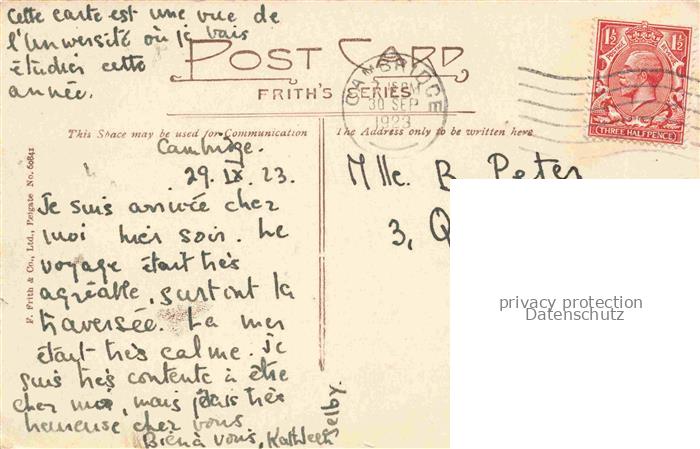 Cette carte est une vue de
l'Université où je vais
étudier cette
année.
POST CARD
FRITH'S SERIES
CAMBRIDGE
30 SEP
1923
1½ 1½
THREE HALFPENCE
This Space may be used for Communication
The Address only to be written here
F. Frith & Co., Ltd., Reigate No. 60841
Cambridge.
29. IX. 23.
Je suis arrivée chez
moi hier soir. Le
voyage était très
agréable, surtout la
traversée. La mer
était très calme. Je
suis très contente à être
chez moi, mais j'étais très
heureuse chez vous.
Bien à vous, Kathleen
Selby.
Mlle. B. Peter
3,
privacy protection
Datenschutz